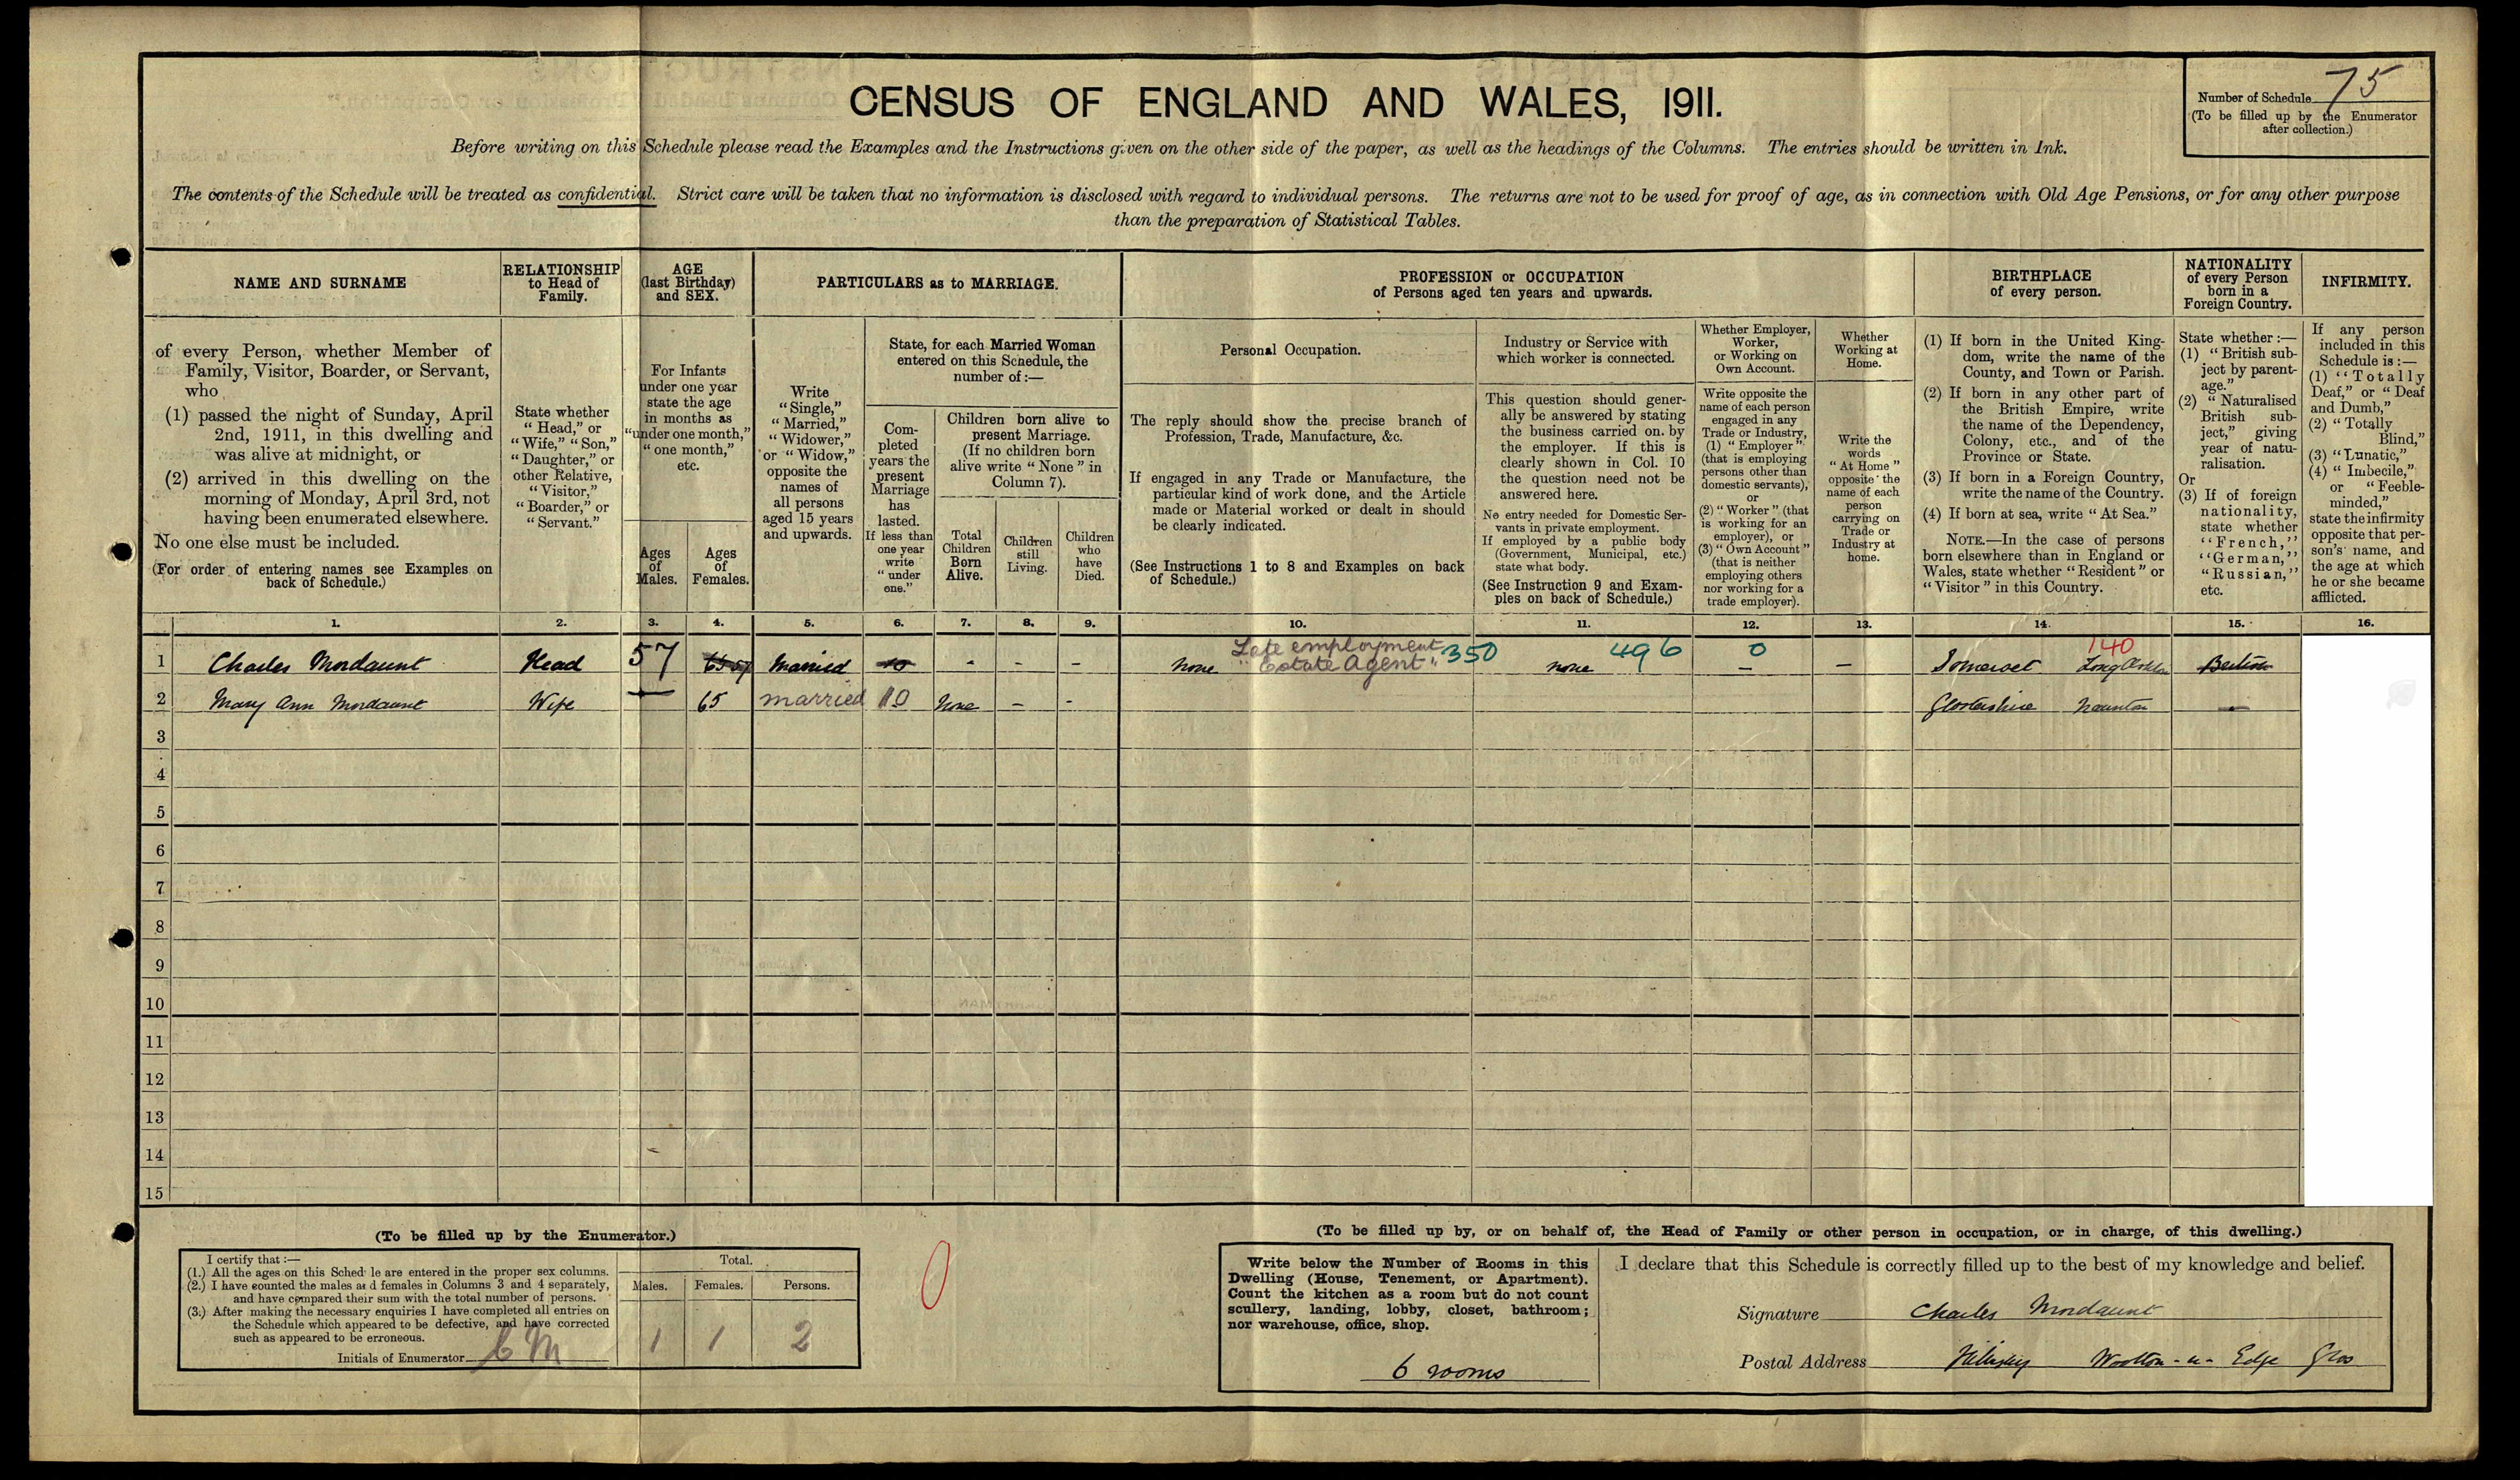 CENSUS OF ENGLAND AND WALES, 1911.
Number of Schedule 75
(To be filled up by the Enumerator
after collection.)
Before writing on this Schedule please read the Examples and the Instructions given on the other side of the paper, as well as the headings of the Columns. The entries should be written in Ink.
The contents of the Schedule will be treated as confidential. Strict care will be taken that no information is disclosed with regard to individual persons. The returns are not to be used for proof of age, as in connection with Old Age Pensions, or for any other purpose
than the preparation of Statistical Tables.
NAME AND SURNAME
of every Person, whether Member of
Family, Visitor, Boarder, or Servant,
who
(1) passed the night of Sunday, April
2nd, 1911, in this dwelling and
was alive at midnight, or
(2) arrived in this dwelling on the
morning of Monday, April 3rd, not
having been enumerated elsewhere.
No one else must be included.
(For order of entering names see Examples on
back of Schedule.)
RELATIONSHIP
to Head of
Family.
State whether
"Head," or
"Wife," "Son,"
"Daughter," or
other Relative,
"Visitor,"
"Boarder," or
"Servant."
AGE
(last Birthday)
and SEX.
For Infants
under one year
state the age
in months as
"under one month,"
"one month,"
etc.
Ages
of
Males.
Ages
of
Females.
PARTICULARS as to MARRIAGE.
Write
"Single,"
"Married,"
"Widower,"
or "Widow,"
opposite the
names of
all persons
aged 15 years
and upwards.
State, for each Married Woman
entered on this Schedule, the
number of:—
Com-
pleted
years the
present
Marriage
has
lasted.
If less than
one year
write
"under
one."
Children born alive to
present Marriage.
(If no children born
alive write "None" in
Column 7).
Total
Children
Born
Alive.
Children
still
Living.
Children
who
have
Died.
PROFESSION or OCCUPATION
of Persons aged ten years and upwards.
Personal Occupation.
The reply should show the precise branch of
Profession, Trade, Manufacture, &c.
If engaged in any Trade or Manufacture, the
particular kind of work done, and the Article
made or Material worked or dealt in should
be clearly indicated.
(See Instructions 1 to 8 and Examples on back
of Schedule.)
Industry or Service with
which worker is connected.
This question should gener-
ally be answered by stating
the business carried on by
the employer. If this is
clearly shown in Col. 10
the question need not be
answered here.
No entry needed for Domestic Ser-
vants in private employment.
If employed by a public body
(Government, Municipal, etc.)
state what body.
(See Instruction 9 and Exam-
ples on back of Schedule.)
Whether Employer,
Worker,
or Working on
Own Account.
Write opposite the
name of each person
engaged in any
Trade or Industry,
(1) "Employer"
(that is employing
persons other than
domestic servants),
or
(2) "Worker" (that
is working for an
employer), or
(3) "Own Account"
(that is neither
employing others
nor working for a
trade employer).
Whether
Working at
Home.
Write the
words
"At Home"
opposite the
name of each
person
carrying on
Trade or
Industry at
home.
BIRTHPLACE
of every person.
(1) If born in the United King-
dom, write the name of the
County, and Town or Parish.
(2) If born in any other part of
the British Empire, write
the name of the Dependency,
Colony, etc., and of the
Province or State.
(3) If born in a Foreign Country,
write the name of the Country.
(4) If born at sea, write "At Sea."
NOTE.—In the case of persons
born elsewhere than in England or
Wales, state whether "Resident" or
"Visitor" in this Country.
NATIONALITY
of every Person
born in a
Foreign Country.
State whether:—
(1) "British sub-
ject by parent-
age."
(2) "Naturalised
British sub-
ject," giving
year of natu-
ralisation.
Or
(3) If of foreign
nationality,
state whether
"French,"
"German,"
"Russian,"
etc.
INFIRMITY.
If any person
included in this
Schedule is:—
(1) "Totally
Deaf," or "Deaf
and Dumb,"
(2) "Totally
Blind,"
(3) "Lunatic,"
(4) "Imbecile,"
or "Feeble-
minded,"
state the infirmity
opposite that per-
son's name, and
the age at which
he or she became
afflicted.
1. 2. 3. 4. 5. 6. 7. 8. 9. 10. 11. 12. 13. 14. 15. 16.
Late employment 350 496 0 140
1 Charles Mordaunt Head 57 Married 10 - - - None "Estate Agent" none — — Somerset Long Ashton
2 Mary Ann Mordaunt Wife — 65 married 10 None - - Glostershire Naunton —
3
4
5
6
7
8
9
10
11
12
13
14
15
(To be filled up by the Enumerator.)
I certify that:—
(1.) All the ages on this Sched le are entered in the proper sex columns.
(2.) I have counted the males a d females in Columns 3 and 4 separately,
and have compared their sum with the total number of persons.
(3.) After making the necessary enquiries I have completed all entries on
the Schedule which appeared to be defective, and have corrected
such as appeared to be erroneous.
Initials of Enumerator
Total.
Males. Females. Persons.
1 1 2
0
(To be filled up by, or on behalf of, the Head of Family or other person in occupation, or in charge, of this dwelling.)
Write below the Number of Rooms in this
Dwelling (House, Tenement, or Apartment).
Count the kitchen as a room but do not count
scullery, landing, lobby, closet, bathroom;
nor warehouse, office, shop.
6 rooms
I declare that this Schedule is correctly filled up to the best of my knowledge and belief.
Signature Charles Mordaunt
Postal Address Wootton-u-Edge Glos